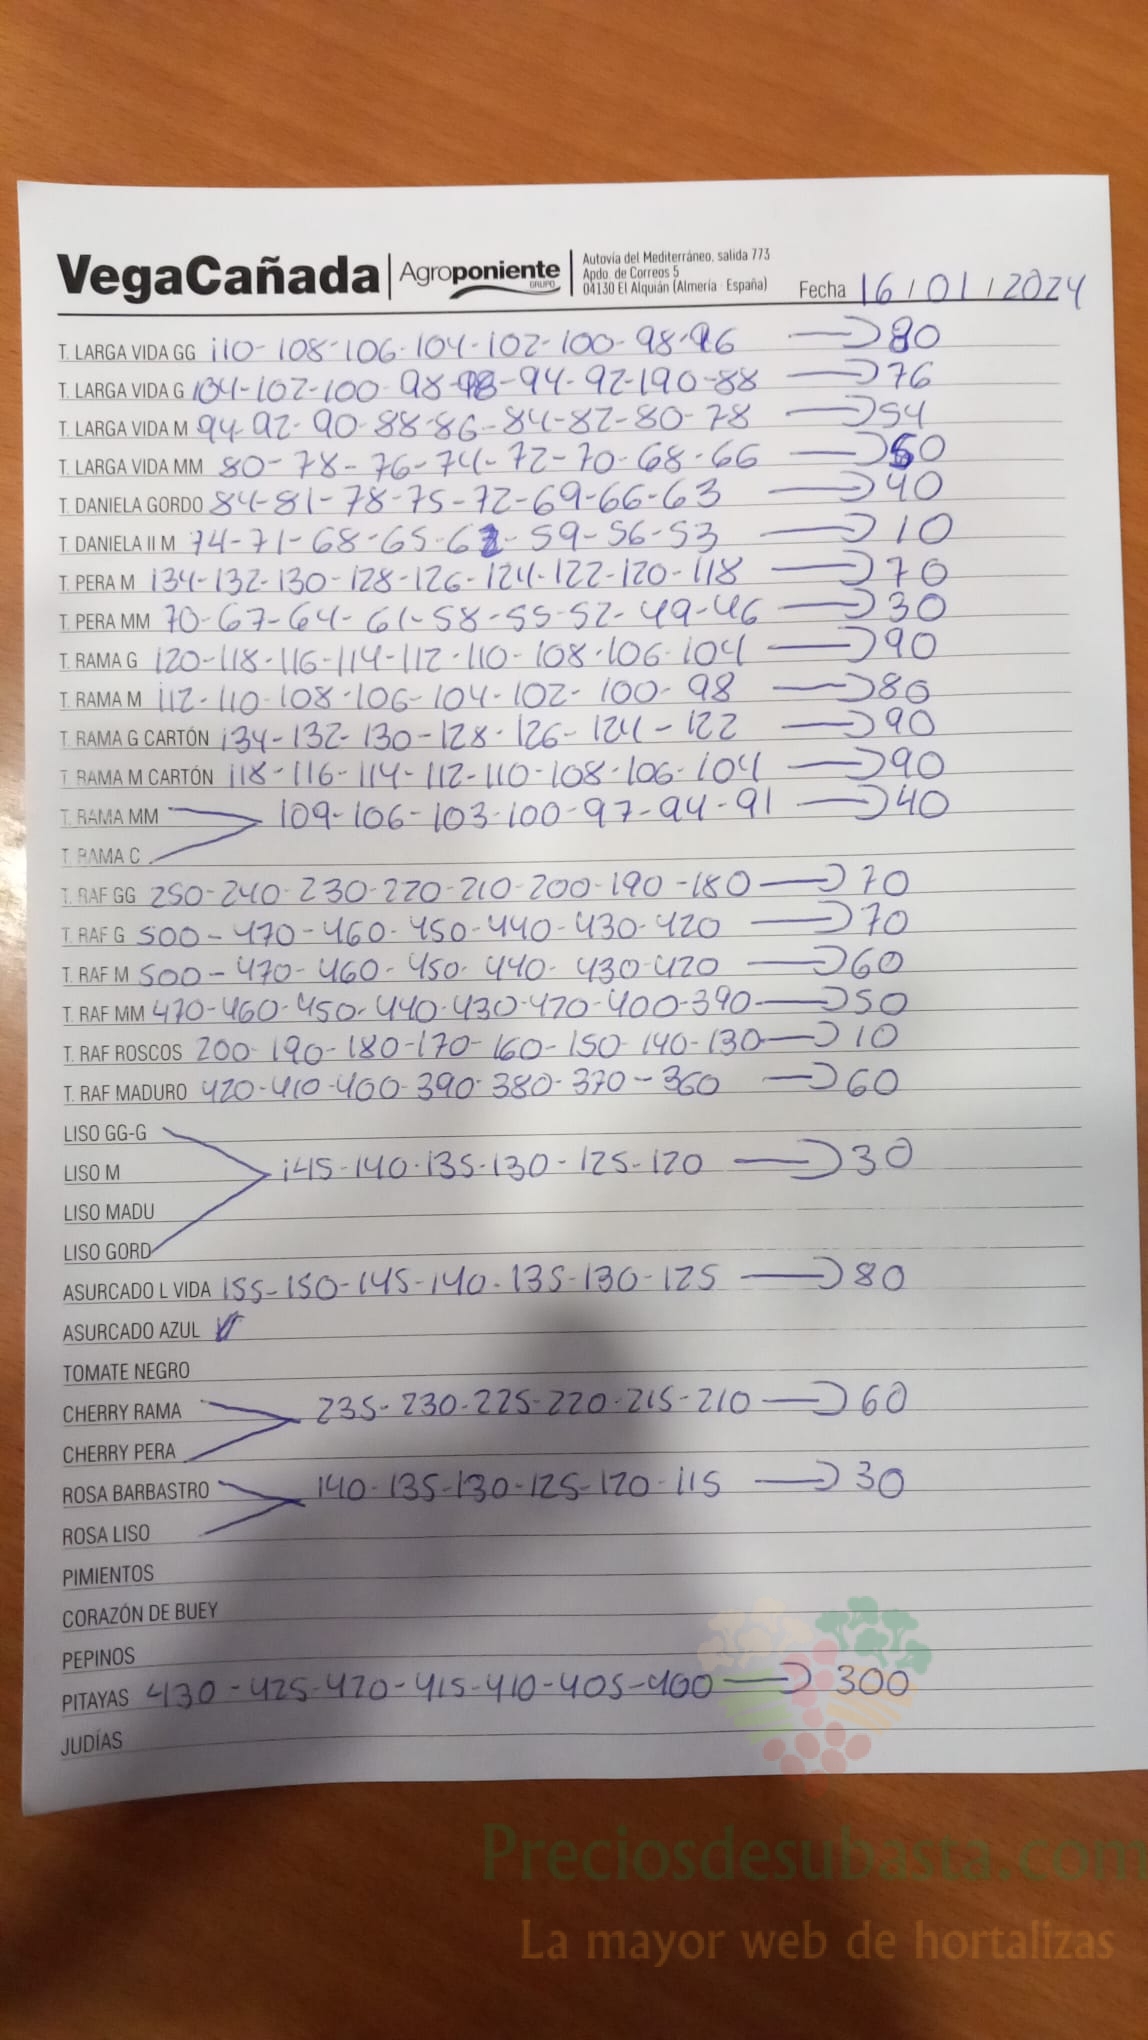 VegaCañada
Agroponiente
GRUPO
Autovía del Mediterráneo, salida 773
Apdo. de Correos 5
04130 El Alquián (Almería - España)
Fecha 16/01/2024
T. LARGA VIDA GG 110-108-106-104-102-100-98-96 80
T. LARGA VIDA G 104-102-100-98-98-94-92-190-88 76
T. LARGA VIDA M 94-92-90-88-86-84-82-80-78 54
T. LARGA VIDA MM 80-78-76-74-72-70-68-66 50
T. DANIELA GORDO 84-81-78-75-72-69-66-63 40
T. DANIELA II M 74-71-68-65-62-59-56-53 10
T. PERA M 134-132-130-128-126-124-122-120-118 70
T. PERA MM 70-67-64-61-58-55-52-49-46 30
T. RAMA G 120-118-116-114-112-110-108-106-104 90
T. RAMA M 112-110-108-106-104-102-100-98 80
T. RAMA G CARTÓN 134-132-130-128-126-124-122 90
T. RAMA M CARTÓN 118-116-114-112-110-108-106-104 90
T. RAMA MM 109-106-103-100-97-94-91 40
T. RAMA C
T. RAF GG 250-240-230-220-210-200-190-180 70
T. RAF G 500-470-460-450-440-430-420 70
T. RAF M 500-470-460-450-440-430-420 60
T. RAF MM 470-460-450-440-430-420-400-390 50
T. RAF ROSCOS 200-190-180-170-160-150-140-130 10
T. RAF MADURO 420-410-400-390-380-370-360 60
LISO GG-G
LISO M 145-140-135-130-125-120 30
LISO MADU
LISO GORD
ASURCADO L VIDA 155-150-145-140-135-130-125 80
ASURCADO AZUL
TOMATE NEGRO
CHERRY RAMA 235-230-225-220-215-210 60
CHERRY PERA
ROSA BARBASTRO 140-135-130-125-120-115 30
ROSA LISO
PIMIENTOS
CORAZÓN DE BUEY
PEPINOS
PITAYAS 430-425-420-415-410-405-400 300
JUDÍAS
Preciosdesubasta.com
La mayor web de hortalizas